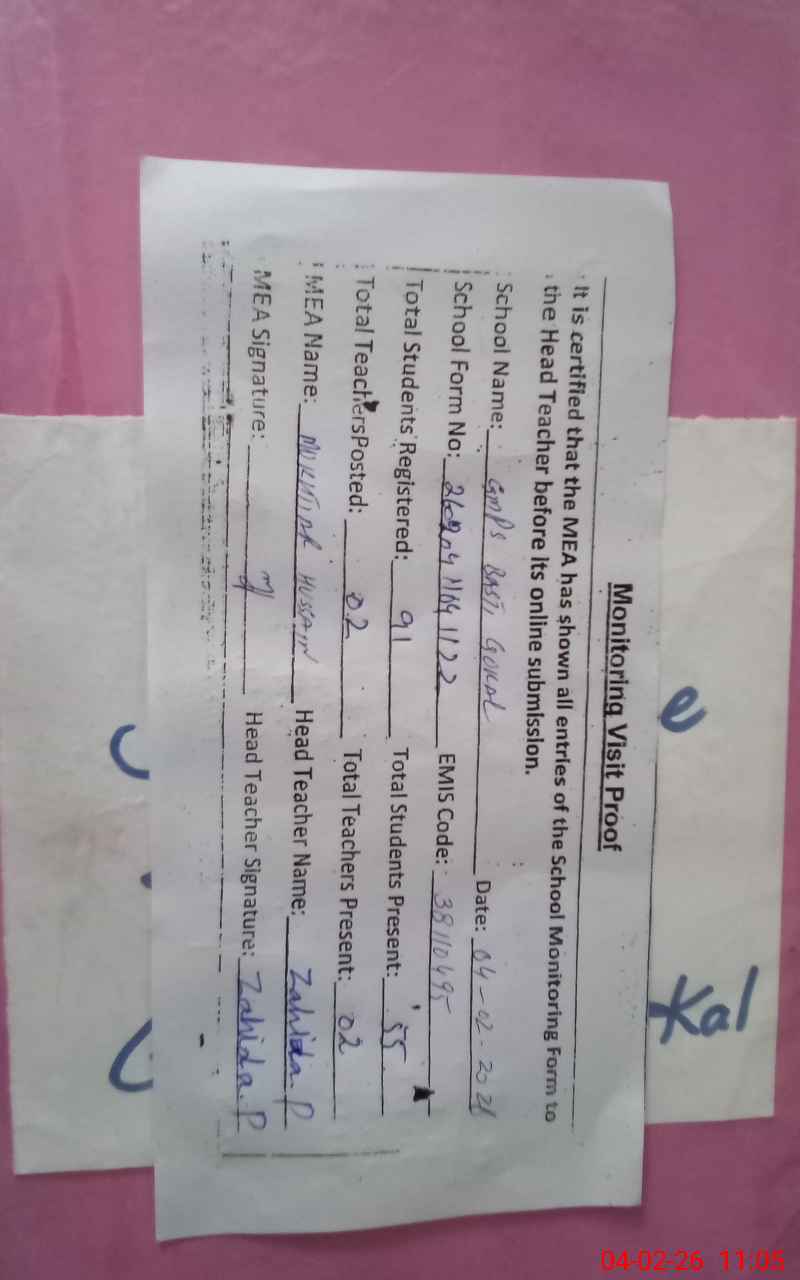 Monitoring Visit Proof
It is certified that the MEA has shown all entries of the School Monitoring Form to
the Head Teacher before its online submission.
School Name: GMPS BASTI GOKAL Date: 04-02-2026
School Form No: EMIS Code: 38110495
Total Students Registered: 91 Total Students Present: 55
Total Teachers Posted: 02 Total Teachers Present: 02
MEA Name: MUKHTIAR HUSSAIN Head Teacher Name: Zahida. P
MEA Signature: Head Teacher Signature: Zahida. P
04-02-26 11:05